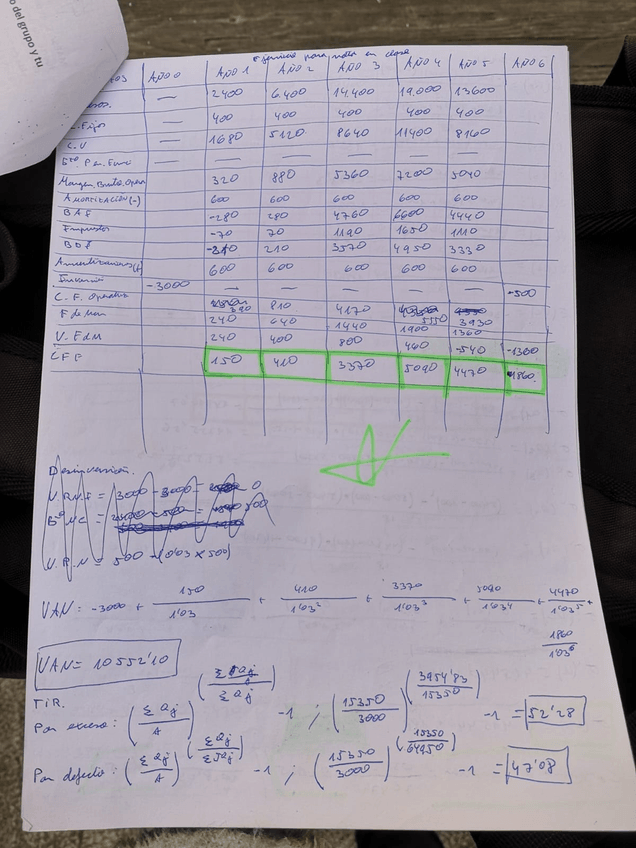 o del grupo y tu
Ejercicio para nota en clase
AÑO 0 AÑO 1 AÑO 2 AÑO 3 AÑO 4 AÑO 5 AÑO 6
— 2400 6.400 14.400 19.000 13600
Fijos — 400 400 400 400 400
C.V — 1680 5120 8640 11400 8160
— — — — — —
Margen Bruto Opera 320 880 5360 7200 5040
Amortización (-) 600 600 600 600 600
BAI -280 280 4760 6600 4440
Impuestos -70 70 1190 1650 1110
BDI -210 210 3570 4950 3330
Amortizaciones (+) 600 600 600 600 600
Inversión -3000 — — — — — -500
C.F. Operativo 390 810 4170 5550 3930
F de Man 240 640 1440 1900 1360
V. FdM 240 400 800 460 -540 -1360
CFF 150 410 3370 5090 4470 1860
Desinversión.
V.R.N.I = 3000 - 3000 = 0
V.R.N = 500 - (0'03 x 500)
VAN = -3000 + 150/1'03 + 410/1'03² + 3370/1'03³ + 5090/1'03⁴ + 4470/1'03⁵ +
1860/1'03⁶
VAN = 10552'10
TIR.
Por exceso: (Σ aj / A) -1 ; (15350/3000)^(3954'83/15350) -1 = 52'28
Por defecto: (Σ aj / A)^(Σ aj / Σ jaj) -1 ; (15350/3000)^(15350/64950) -1 = 47'08